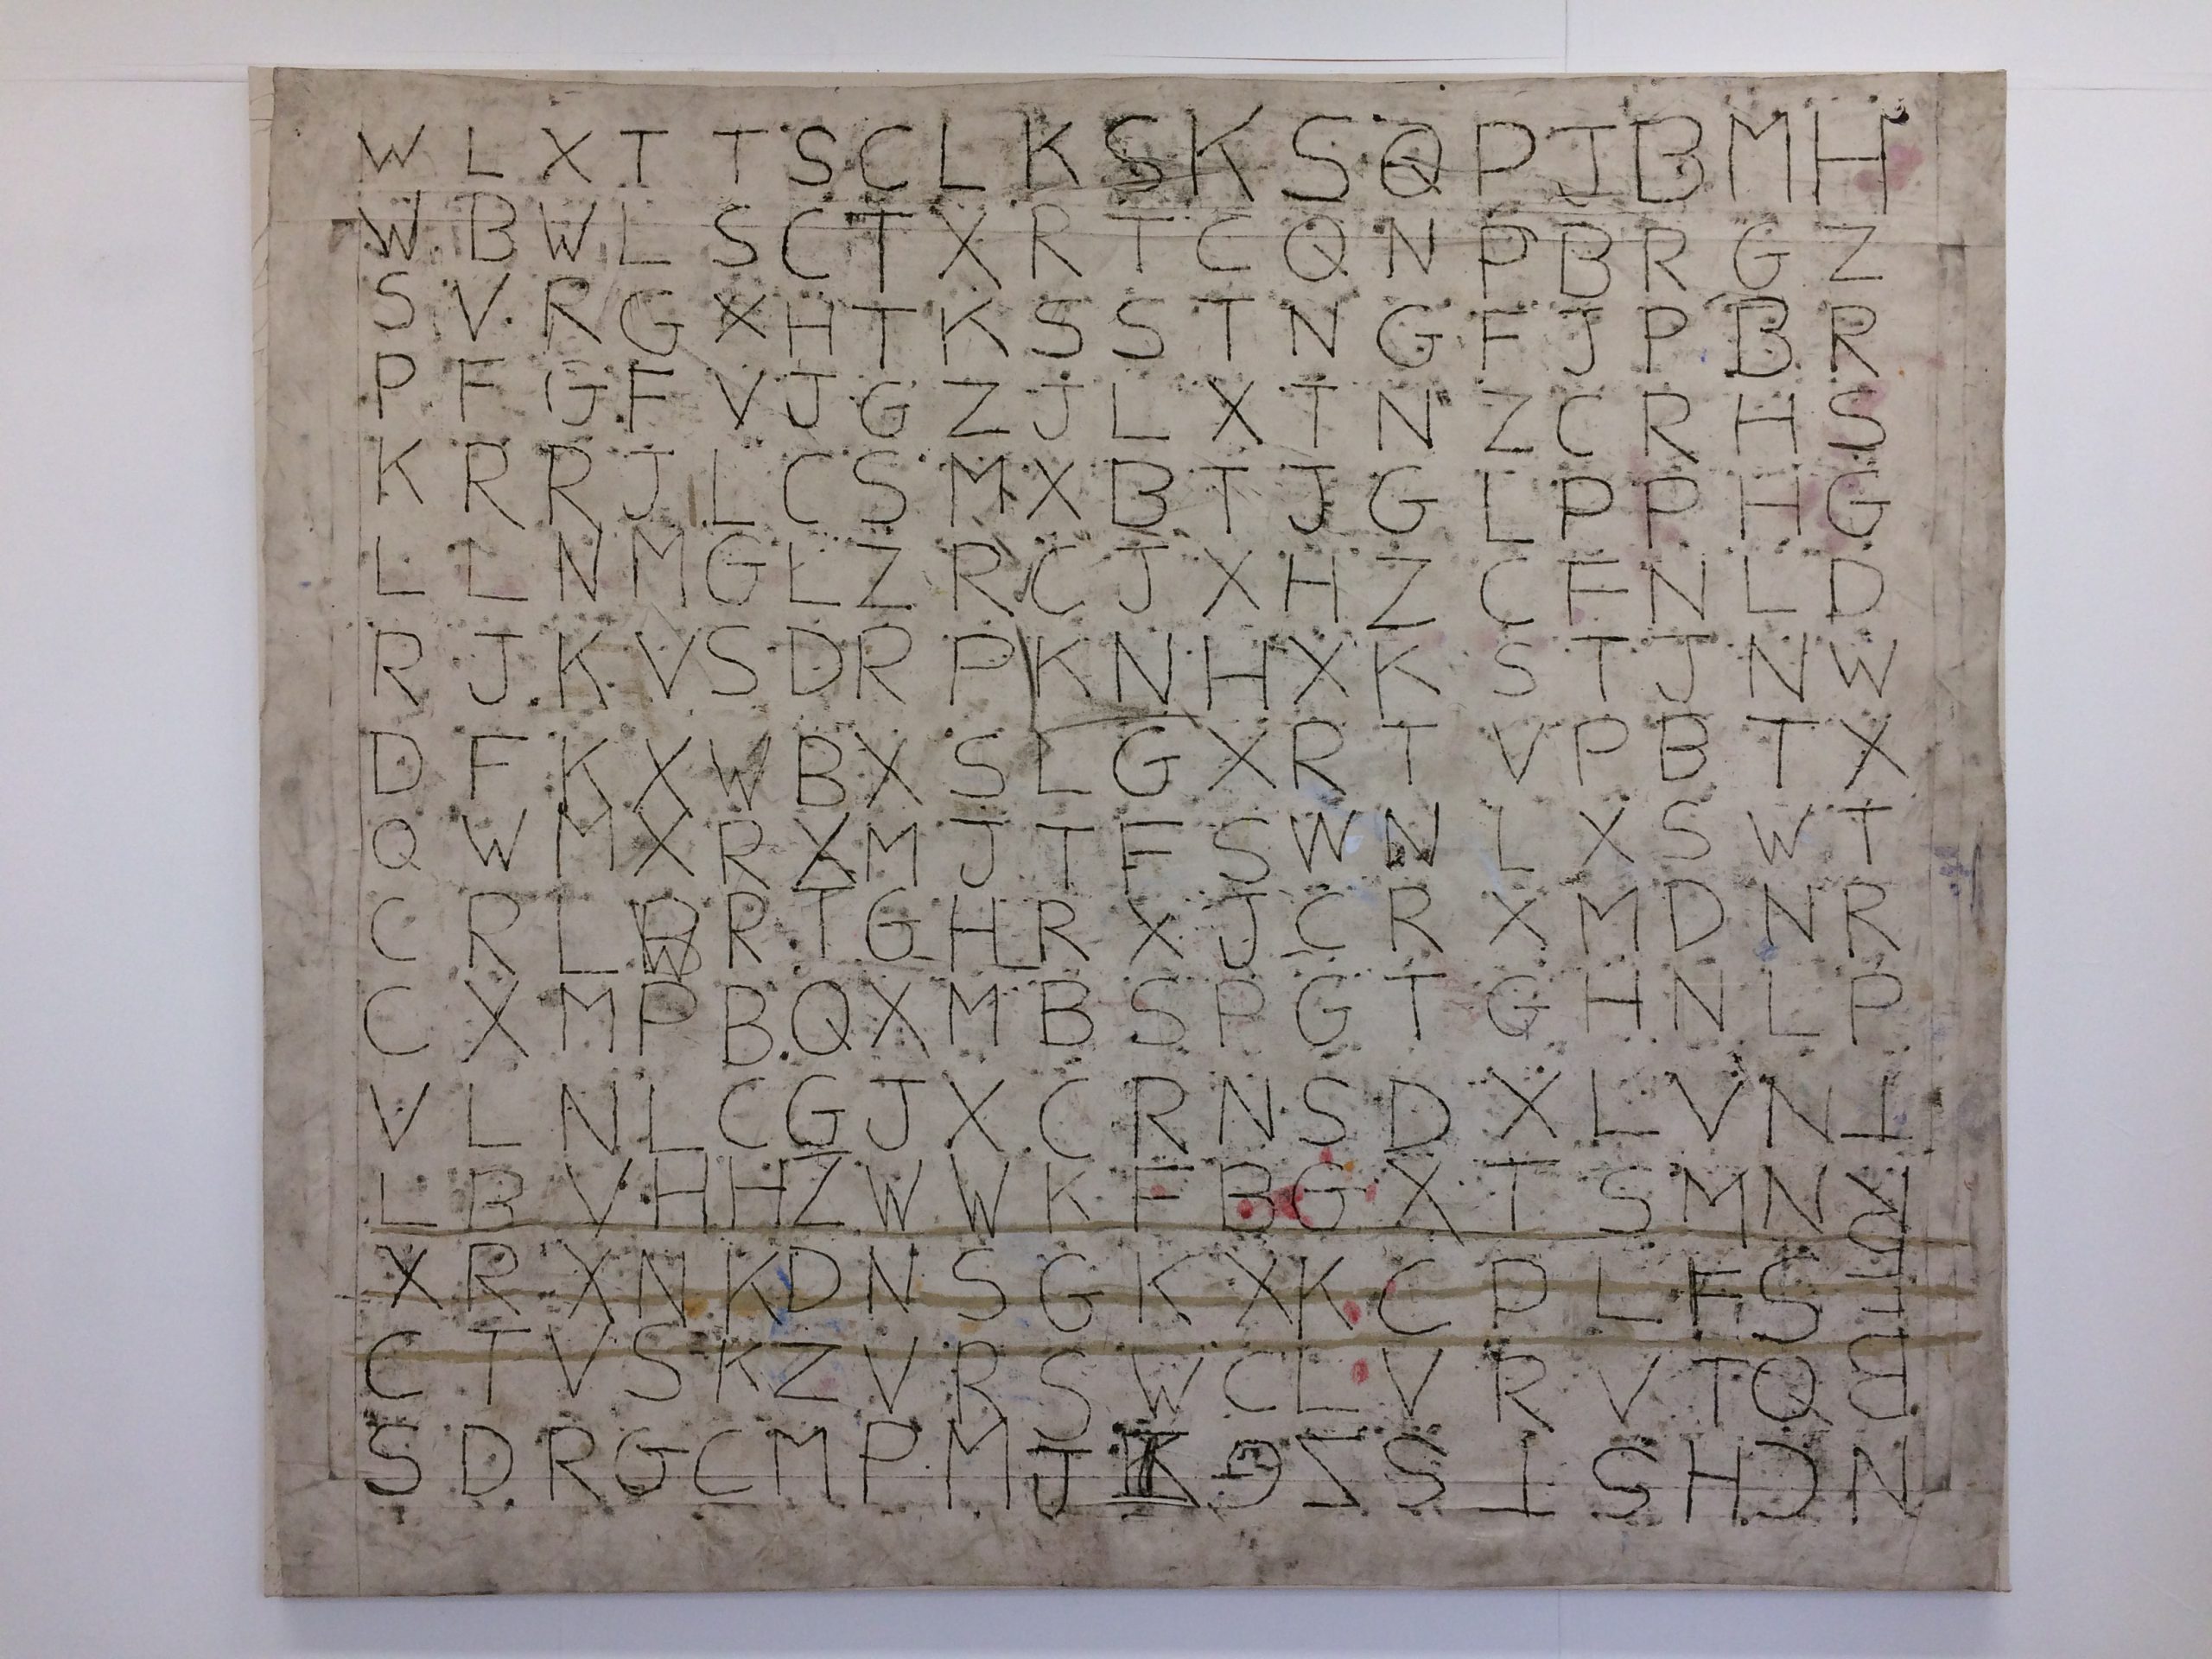 W L X T T S C L K S K S Q P J B M H
W B W L S C T X R T C Q N P B R G Z
S V R G X H T K S S T N G F J P B R
P F G F V J G Z J L X T N Z C R H S
K R R J L C S M X B T J G L P P H G
L L N M G L Z R C J X H Z C F N L D
R J K V S D R P K N H X K S T J N W
D F K X W B X S L G X R T V P B T X
Q W M X R X M J T F S W N L X S W T
C R L R T G H R X J C R X M D N R
C X M P B Q X M B S P G T G H N L P
V L N L C G J X C R N S D X L V N T
L B V H H Z W W K F B G X T S M N R
X R X N K D N S G K X K C P L F S F
C T V S K Z V R S W C L V R V T Q B
S D R G C M P M J K G Z S T S H C N